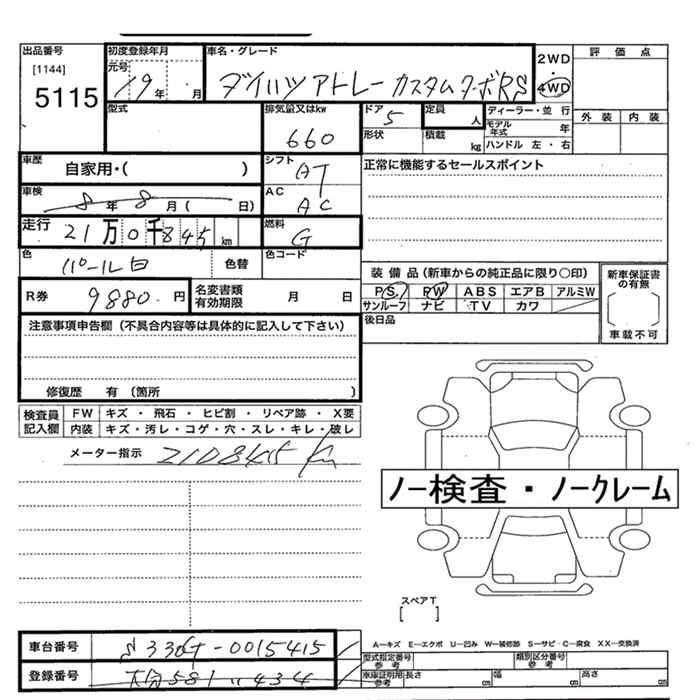 出品番号 [1144] 5115
初度登録年月 元号 19年 月
車名・グレード ダイハツアトレー カスタムターボRS
2WD
4WD
評価点
外装 内装
型式
排気量又はkw 660
ドア 5
形状
定員 人
積載 kg
ディーラー・並行
モデル年式 年
ハンドル 左・右
車歴 自家用・( )
シフト AT
正常に機能するセールスポイント
車検 8年8月( 日)
AC AC
走行 21万0千845km
燃料 G
色 パール白 色替
色コード
R券 9880円
名変書類有効期限 月 日
装備品(新車からの純正品に限り○印)
P/S PW ABS エアB アルミW
サンルーフ ナビ TV カワ
後日品
新車保証書の有無
[ ]
車載不可
注意事項申告欄(不具合内容等は具体的に記入して下さい)
修復歴 有(箇所
検査員記入欄
FW キズ・飛石・ヒビ割・リペア跡・X要
内装 キズ・汚レ・コゲ・穴・スレ・キレ・破レ
メーター指示 210845km
ノー検査・ノークレーム
スペアT
[ ]
車台番号 -0015415
登録番号 大分581 434
A-キズ E-エクボ U-凹み W-補修跡 S-サビ・C-腐食 XX-交換済
型式指定番号 参考
類別区分番号 参考
車庫証明用 参考 長さ cm 幅 cm 高さ cm